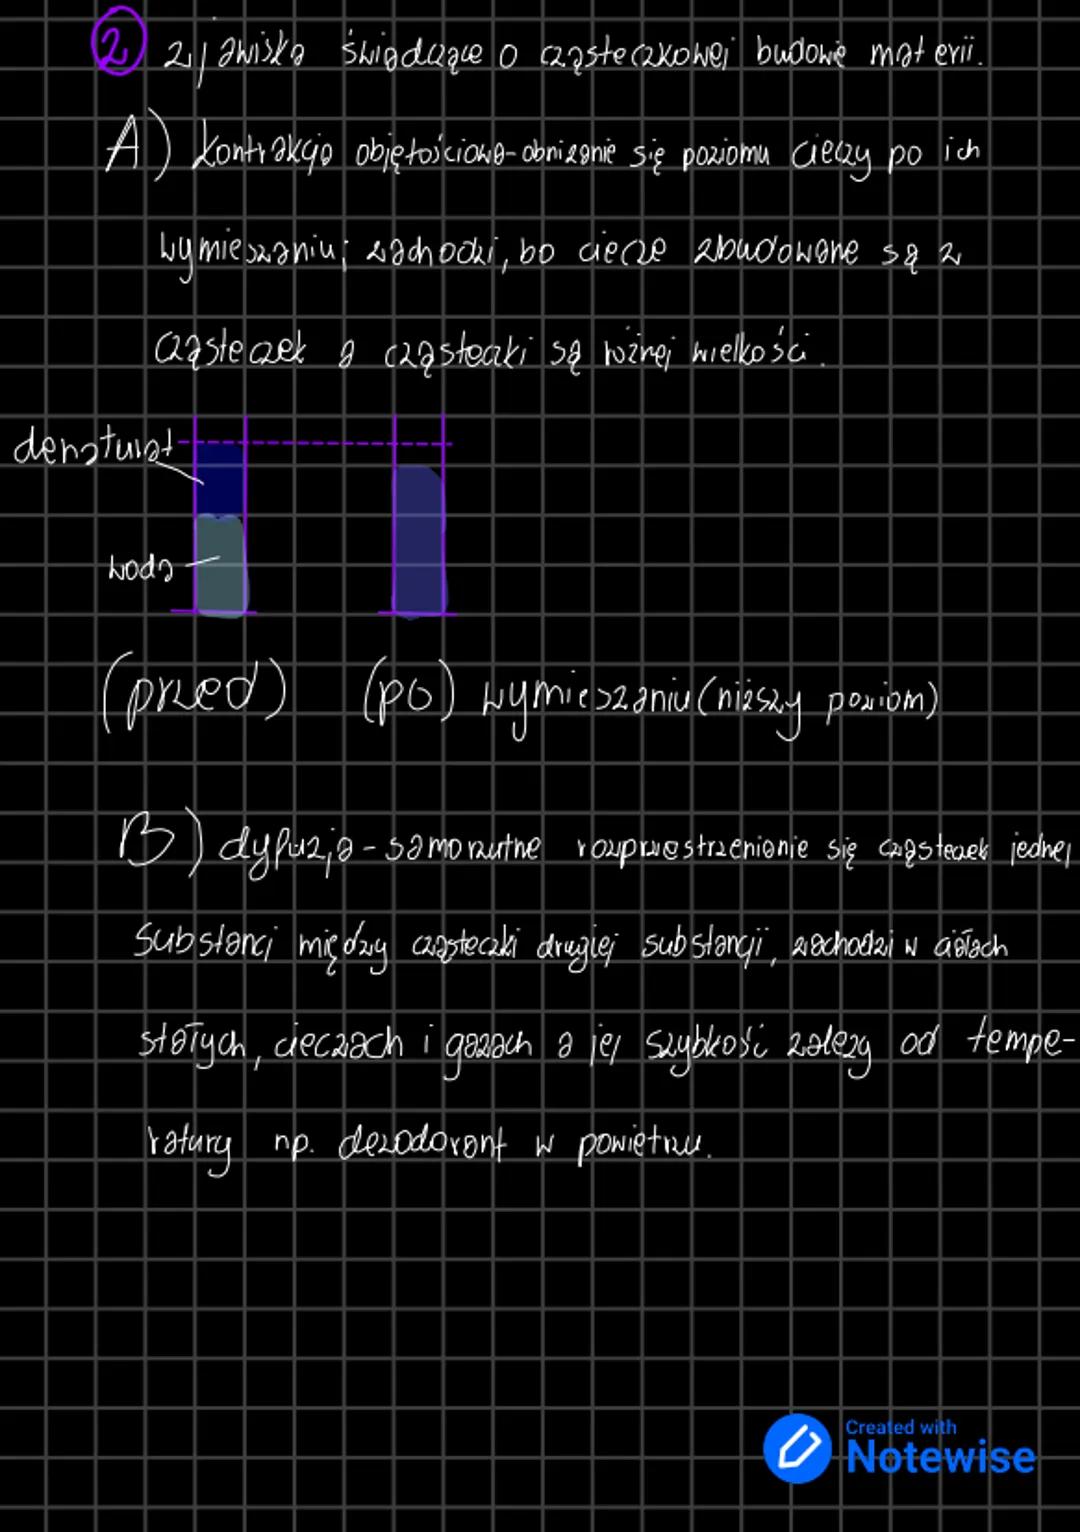 2 zjawiska świadczące o cząsteczkowej budowie materii.
A) Kontrakcja objętościowa-obniżanie się poziomu cieczy po ich
wymieszaniu; zachodzi, bo ciecze zbudowane są z
cząsteczek a cząsteczki są różnej wielkości.
denaturat
woda
(przed) (po) wymieszaniu (niższy poziom)
B) dyfuzja - samorzutne rozprzestrzenianie się cząsteczek jednej
substancj między cząsteczki drugiej substancji, zachodzi w ciałach
stałych, cieczach i gazach a jej szybkość zależy od tempe-
ratury np. dezodorant w powietrzu.
Created with
Notewise